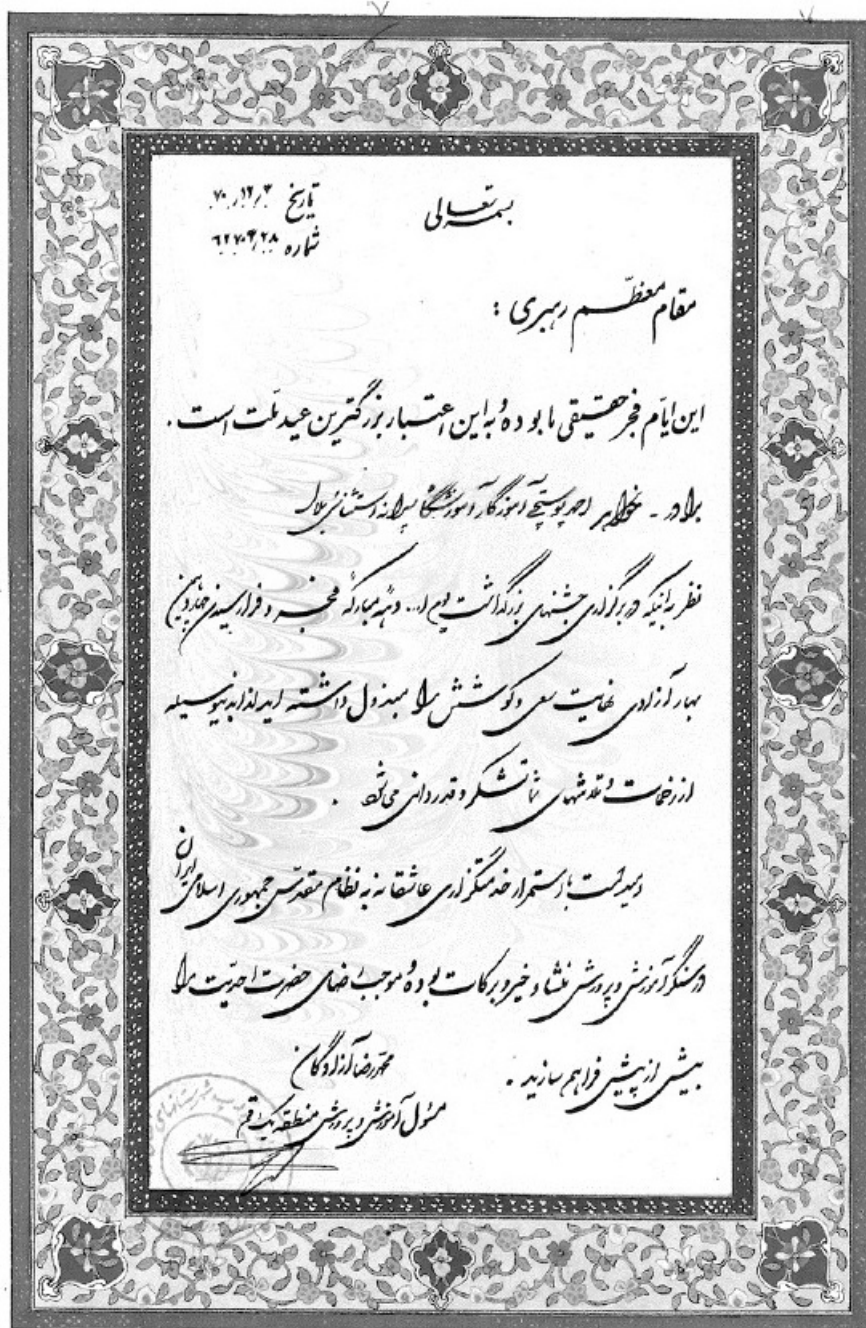 بسمه تعالی
تاریخ ۷۰/۱۲/۴
شماره ۶۲۷۰۴/۲۸
مقام معظم رهبری :
این ایام فجر حقیقی ما بوده و به این اعتبار بزرگترین عید ملت است .
برادر - خواهر احمد پوستچی آموزگار آموزشگاه پسرانه استثنائی بلال
نظر به اینکه در برگزاری جشنهای بزرگداشت یوم ا... دهه مبارکه فجر و فرا رسیدن چهاردهمین
بهار آزادی نهایت سعی و کوشش را مبذول داشته اید لذا بدینوسیله
از زحمات و تلاشهای شما تشکر و قدردانی می شود .
امید است با استمرار خدمتگزاری عاشقانه به نظام مقدس جمهوری اسلامی ایران
در سنگر آموزش و پرورش منشاء خیر و برکات بوده و موجب رضای حضرت احدیت را
بیش از پیش فراهم سازید .
محمدرضا آزادگان
مسئول آموزش و پرورش منطقه یک قم